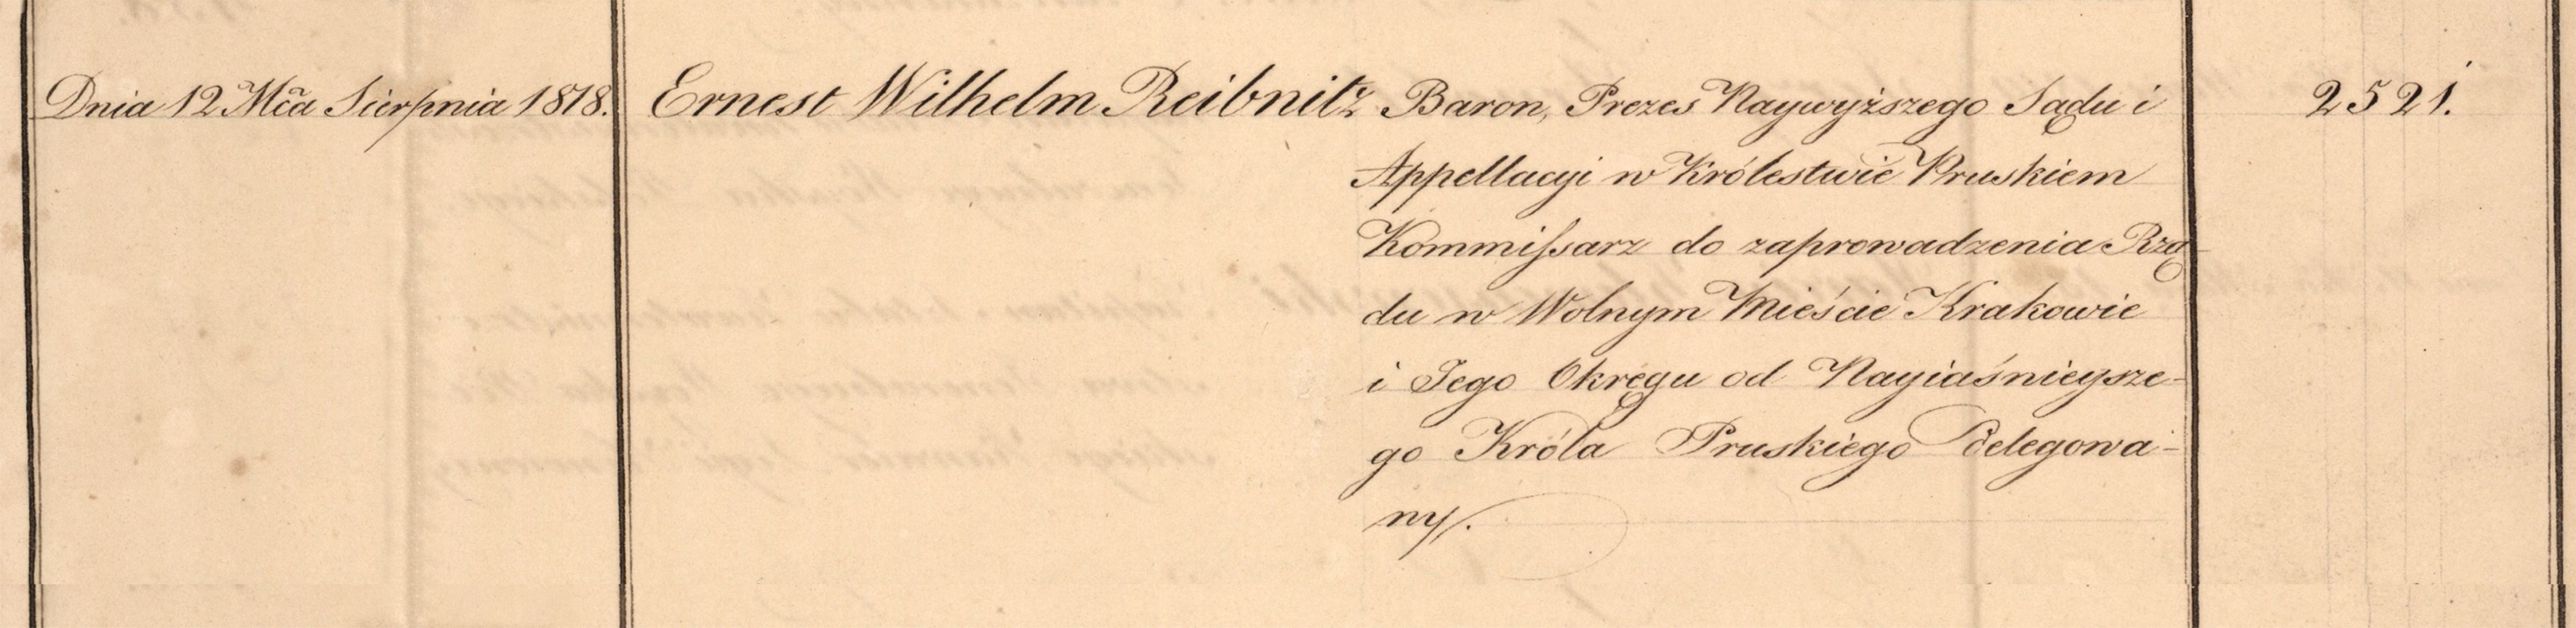 Dnia 12 Mca Sierpnia 1818. Ernest Wilhelm Reibnitz Baron, Prezes Naywyższego Sądu i 2521.
Appellacyi w Królestwie Pruskiem
Kommissarz do zaprowadzenia Rzą-
du w Wolnym Mieście Krakowie
i Jego Okręgu od Nayiaśnieysze-
go Króla Pruskiego Delegowa-
ny.